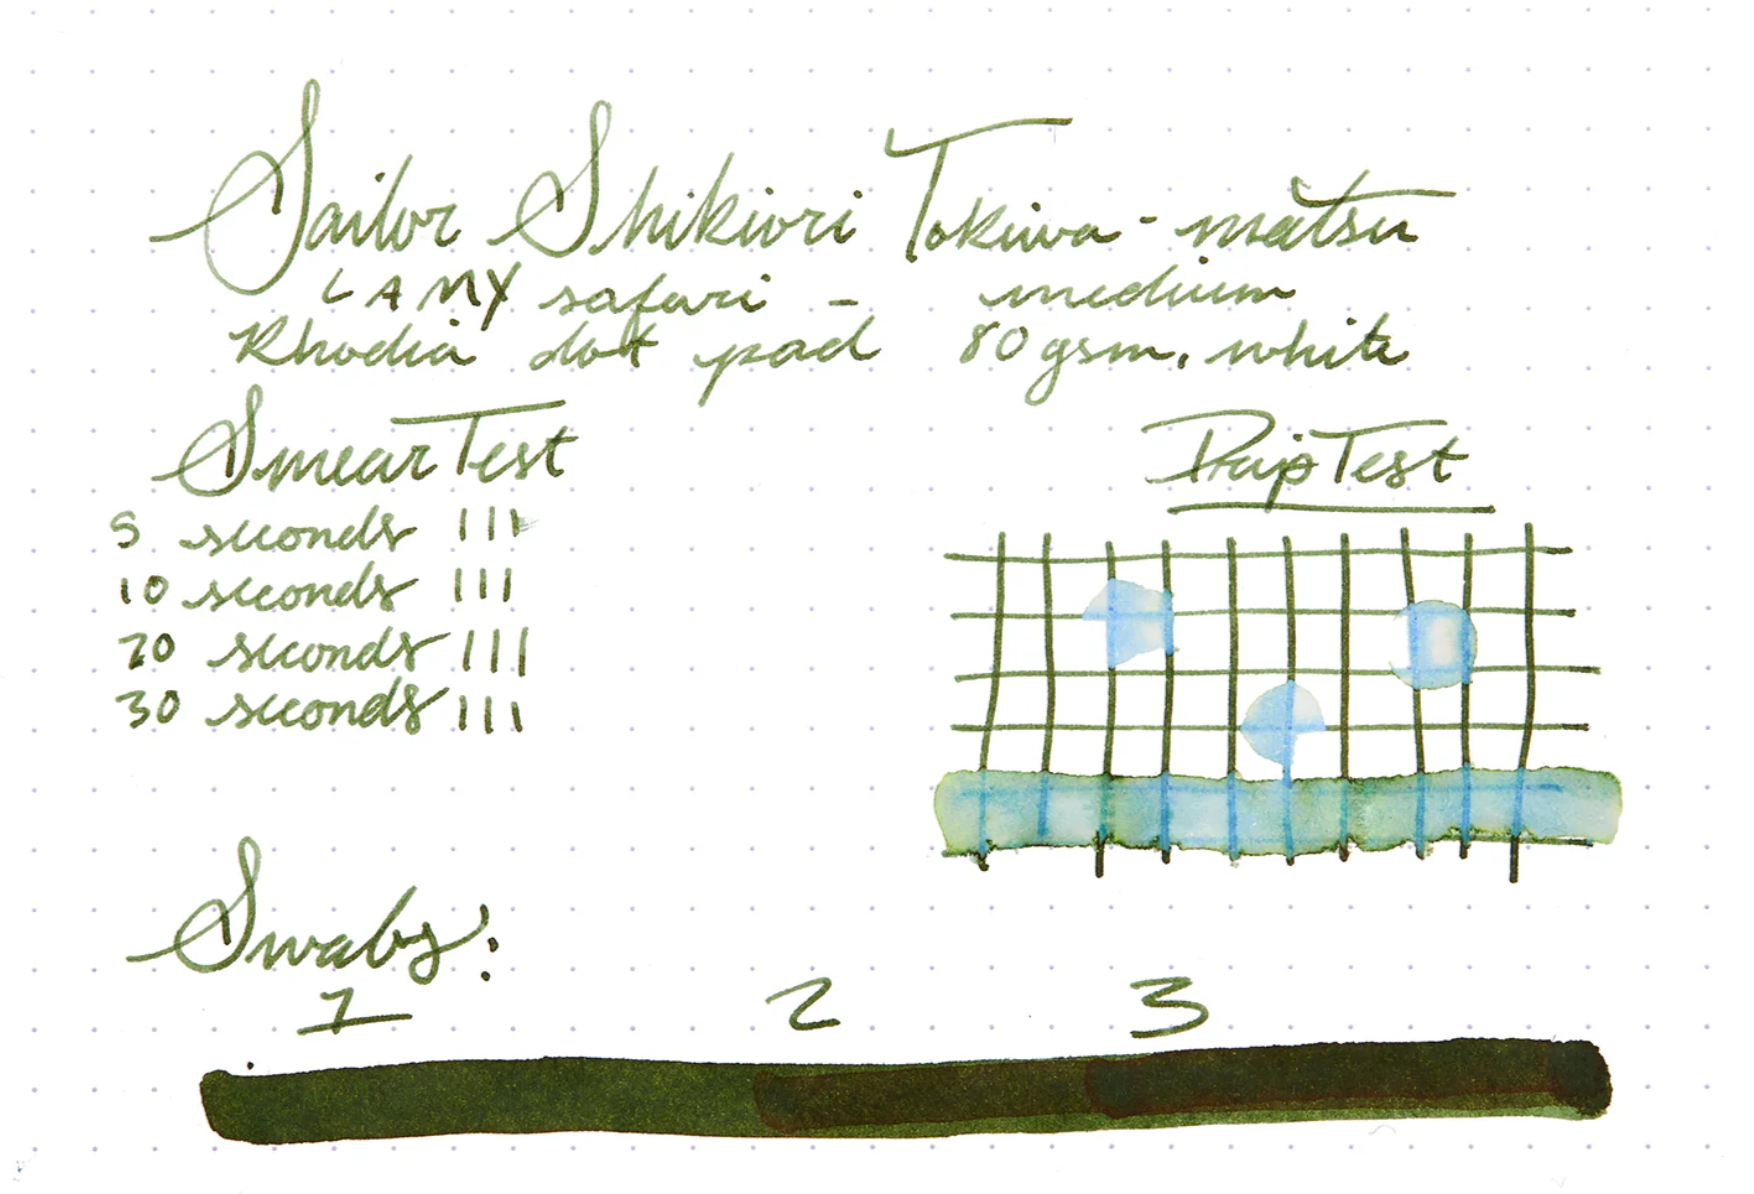 Sailor Shikiori Tokiwa-matsu
LAMY safari - medium
Rhodia dot pad 80gsm, white
Smear Test
5 seconds
10 seconds
20 seconds
30 seconds
Drip Test
Swabs:
1 2 3